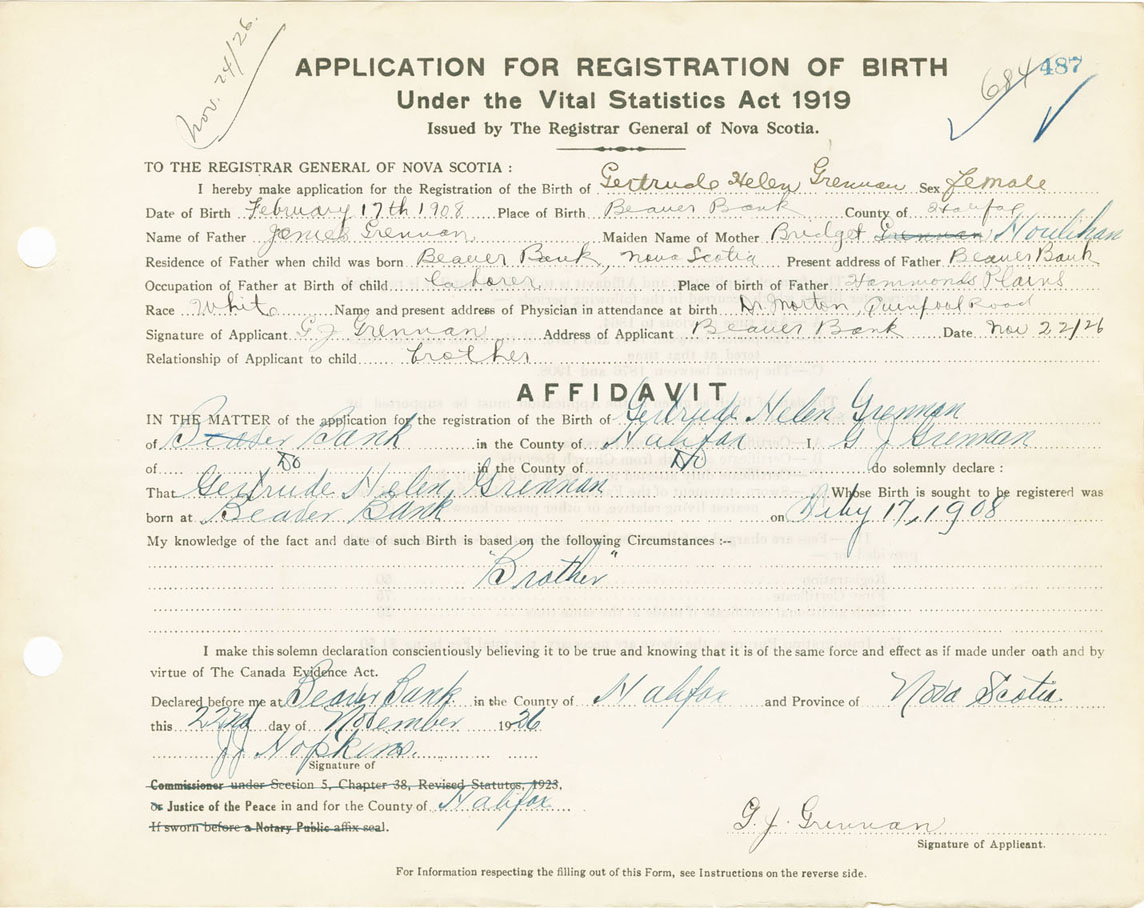 Nov. 24/26.
684 487
APPLICATION FOR REGISTRATION OF BIRTH
Under the Vital Statistics Act 1919
Issued by The Registrar General of Nova Scotia.
TO THE REGISTRAR GENERAL OF NOVA SCOTIA :
I hereby make application for the Registration of the Birth of Gertrude Helen Grennan Sex female
Date of Birth February 17th 1908 Place of Birth Beaver Bank County of Halifax
Name of Father James Grennan Maiden Name of Mother Bridget Grennan Houlihan
Residence of Father when child was born Beaver Bank, Nova Scotia Present address of Father Beaver Bank
Occupation of Father at Birth of child Laborer Place of birth of Father Hammonds Plains
Race White Name and present address of Physician in attendance at birth Dr Morton, Quinpool Road
Signature of Applicant G J Grennan Address of Applicant Beaver Bank Date Nov 22/26
Relationship of Applicant to child brother
AFFIDAVIT
IN THE MATTER of the application for the registration of the Birth of Gertrude Helen Grennan
of Beaver Bank in the County of Halifax I, G J Grennan
of Do in the County of Do do solemnly declare :
That Gertrude Helen Grennan Whose Birth is sought to be registered was
born at Beaver Bank on Feby 17, 1908
My knowledge of the fact and date of such Birth is based on the following Circumstances :--
"Brother"
I make this solemn declaration conscientiously believing it to be true and knowing that it is of the same force and effect as if made under oath and by
virtue of The Canada Evidence Act.
Declared before me at Beaver Bank in the County of Halifax and Province of Nova Scotia
this 22nd day of November 1926
J J Hopkins.
Signature of
Commissioner under Section 5, Chapter 38, Revised Statutes, 1923,
or Justice of the Peace in and for the County of Halifax
If sworn before a Notary Public affix seal.
G. J. Grennan
Signature of Applicant.
For Information respecting the filling out of this Form, see Instructions on the reverse side.